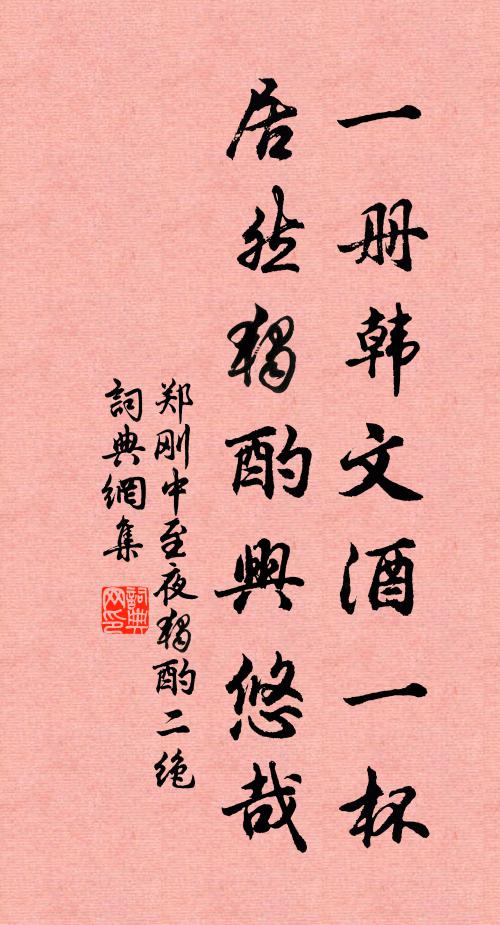 一册韩文酒一杯
居然独酌興悠哉
郑刚中至夜独酌二绝
詞典網集
詞典网印